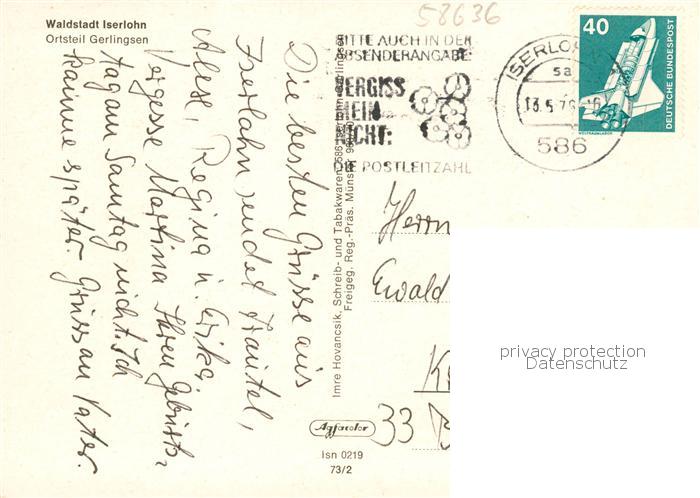 58636
Waldstadt Iserlohn
Ortsteil Gerlingsen
BITTE AUCH IN DER
ABSENDERANGABE
VERGISS
MEIN
NICHT:
DIE POSTLEITZAHL
ISERLO
sa
13.5.7
586
40
DEUTSCHE BUNDESPOST
WELTRAUMLABOR
Die besten Grüsse aus
Iserlohn sendet
Alex, Regina u. Erika.
Vergesse Martina Ihren Geburts-
tag am Samtag nicht. Ich
komme später. Gruss an Vater.
Imre Hovancsik, Schreib- und Tabakwaren, 586 Iserlohn-Gerlingsen
Freigeg. Reg.-Präs. Münst
Herrn
Ewald
K
33
Agfacolor
Isn 0219
73/2
privacy protection
Datenschutz